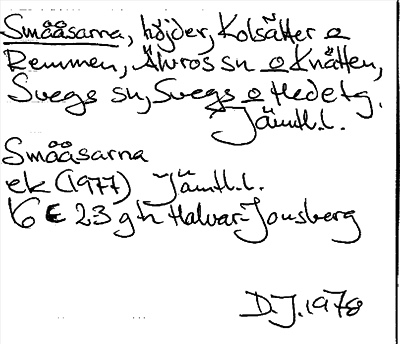 Smååsarna, höjder, Kolsätter o
Remmen, Älvros sn o Knätten,
Svegs sn, Svegs o Hede tg.
Jämtl.l.
Smååsarna
ek (1977) Jämtl.l.
16 E 23 gh Halvar Jonsberg
D.J. 1978